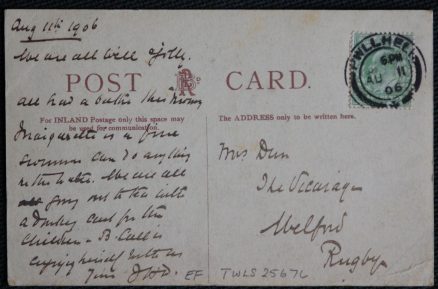 Aug 11th 1906
We are all well & jolly.
POST CARD.
all had a bathe this morning
For INLAND Postage only this space may
be used for communication.
Marguerite is a fine
swimmer can do anything
in the water. We are all
going out to tea with
a donkey cart for the
children - B. Call is
enjoying herself with us
Yrs.
The ADDRESS only to be written here.
PWLLHELI
6 PM
AU 11
06
Mrs Dun
The Vicarage
Welford
Rugby
EF
TWLS 25676